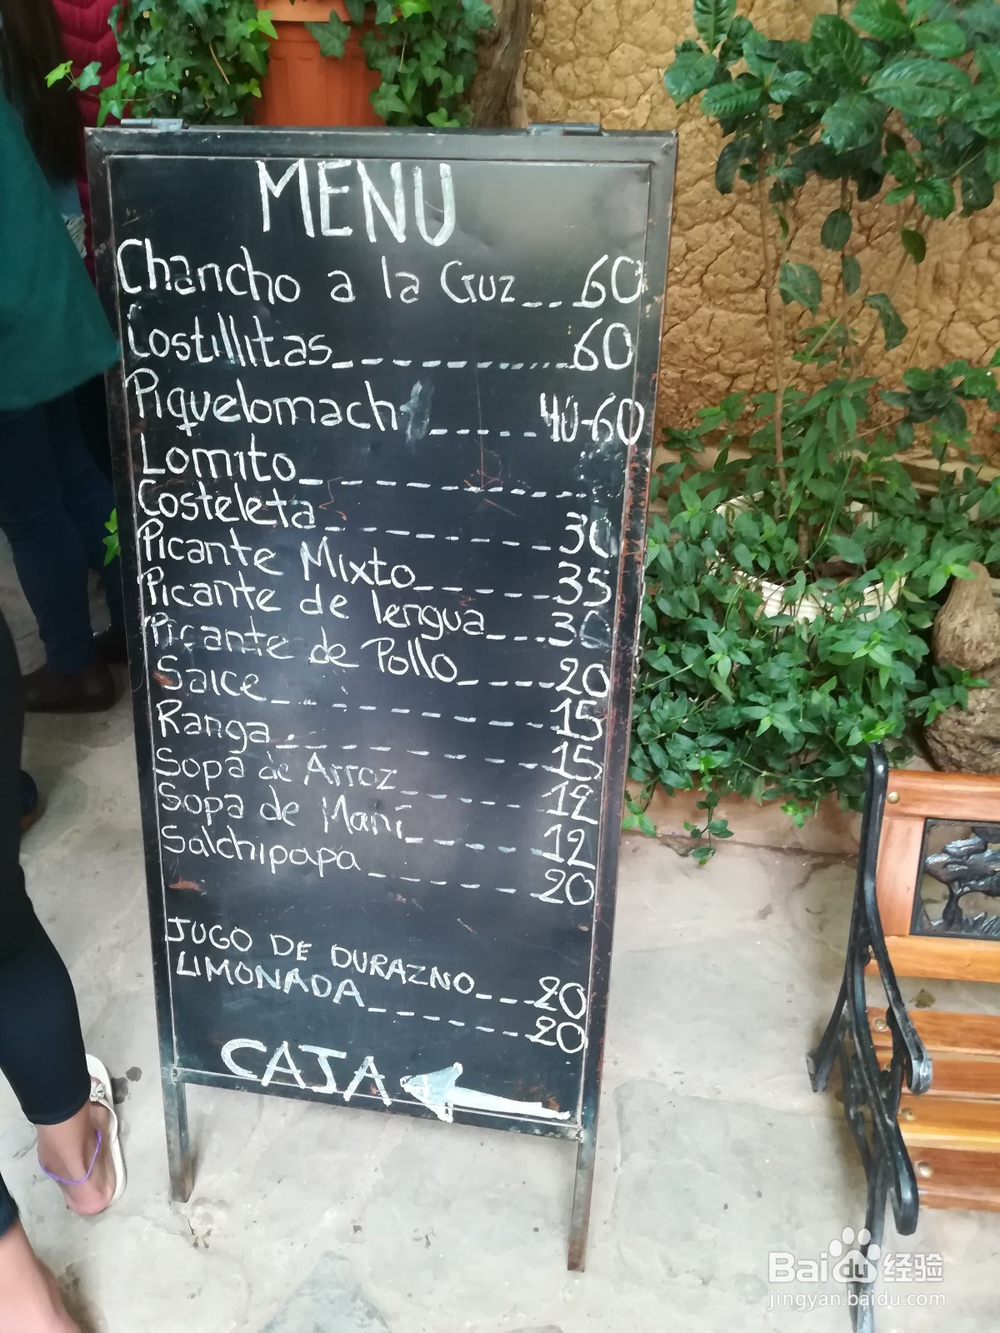 MENU
Chancho a la Cruz__.60
Costillitas_________60
Piquelomach _____40-60
Lomito_____________
Costeleta________30
Picante Mixto______35
Picante de lengua___30
Picante de Pollo_____20
Saice___________15
Ranga___________15
Sopa de Arroz______12
Sopa de Maní_______12
Salchipapa_______20
JUGO DE DURAZNO___20
LIMONADA________20
CAJA
Baidu 经验
jingyan.baidu.com